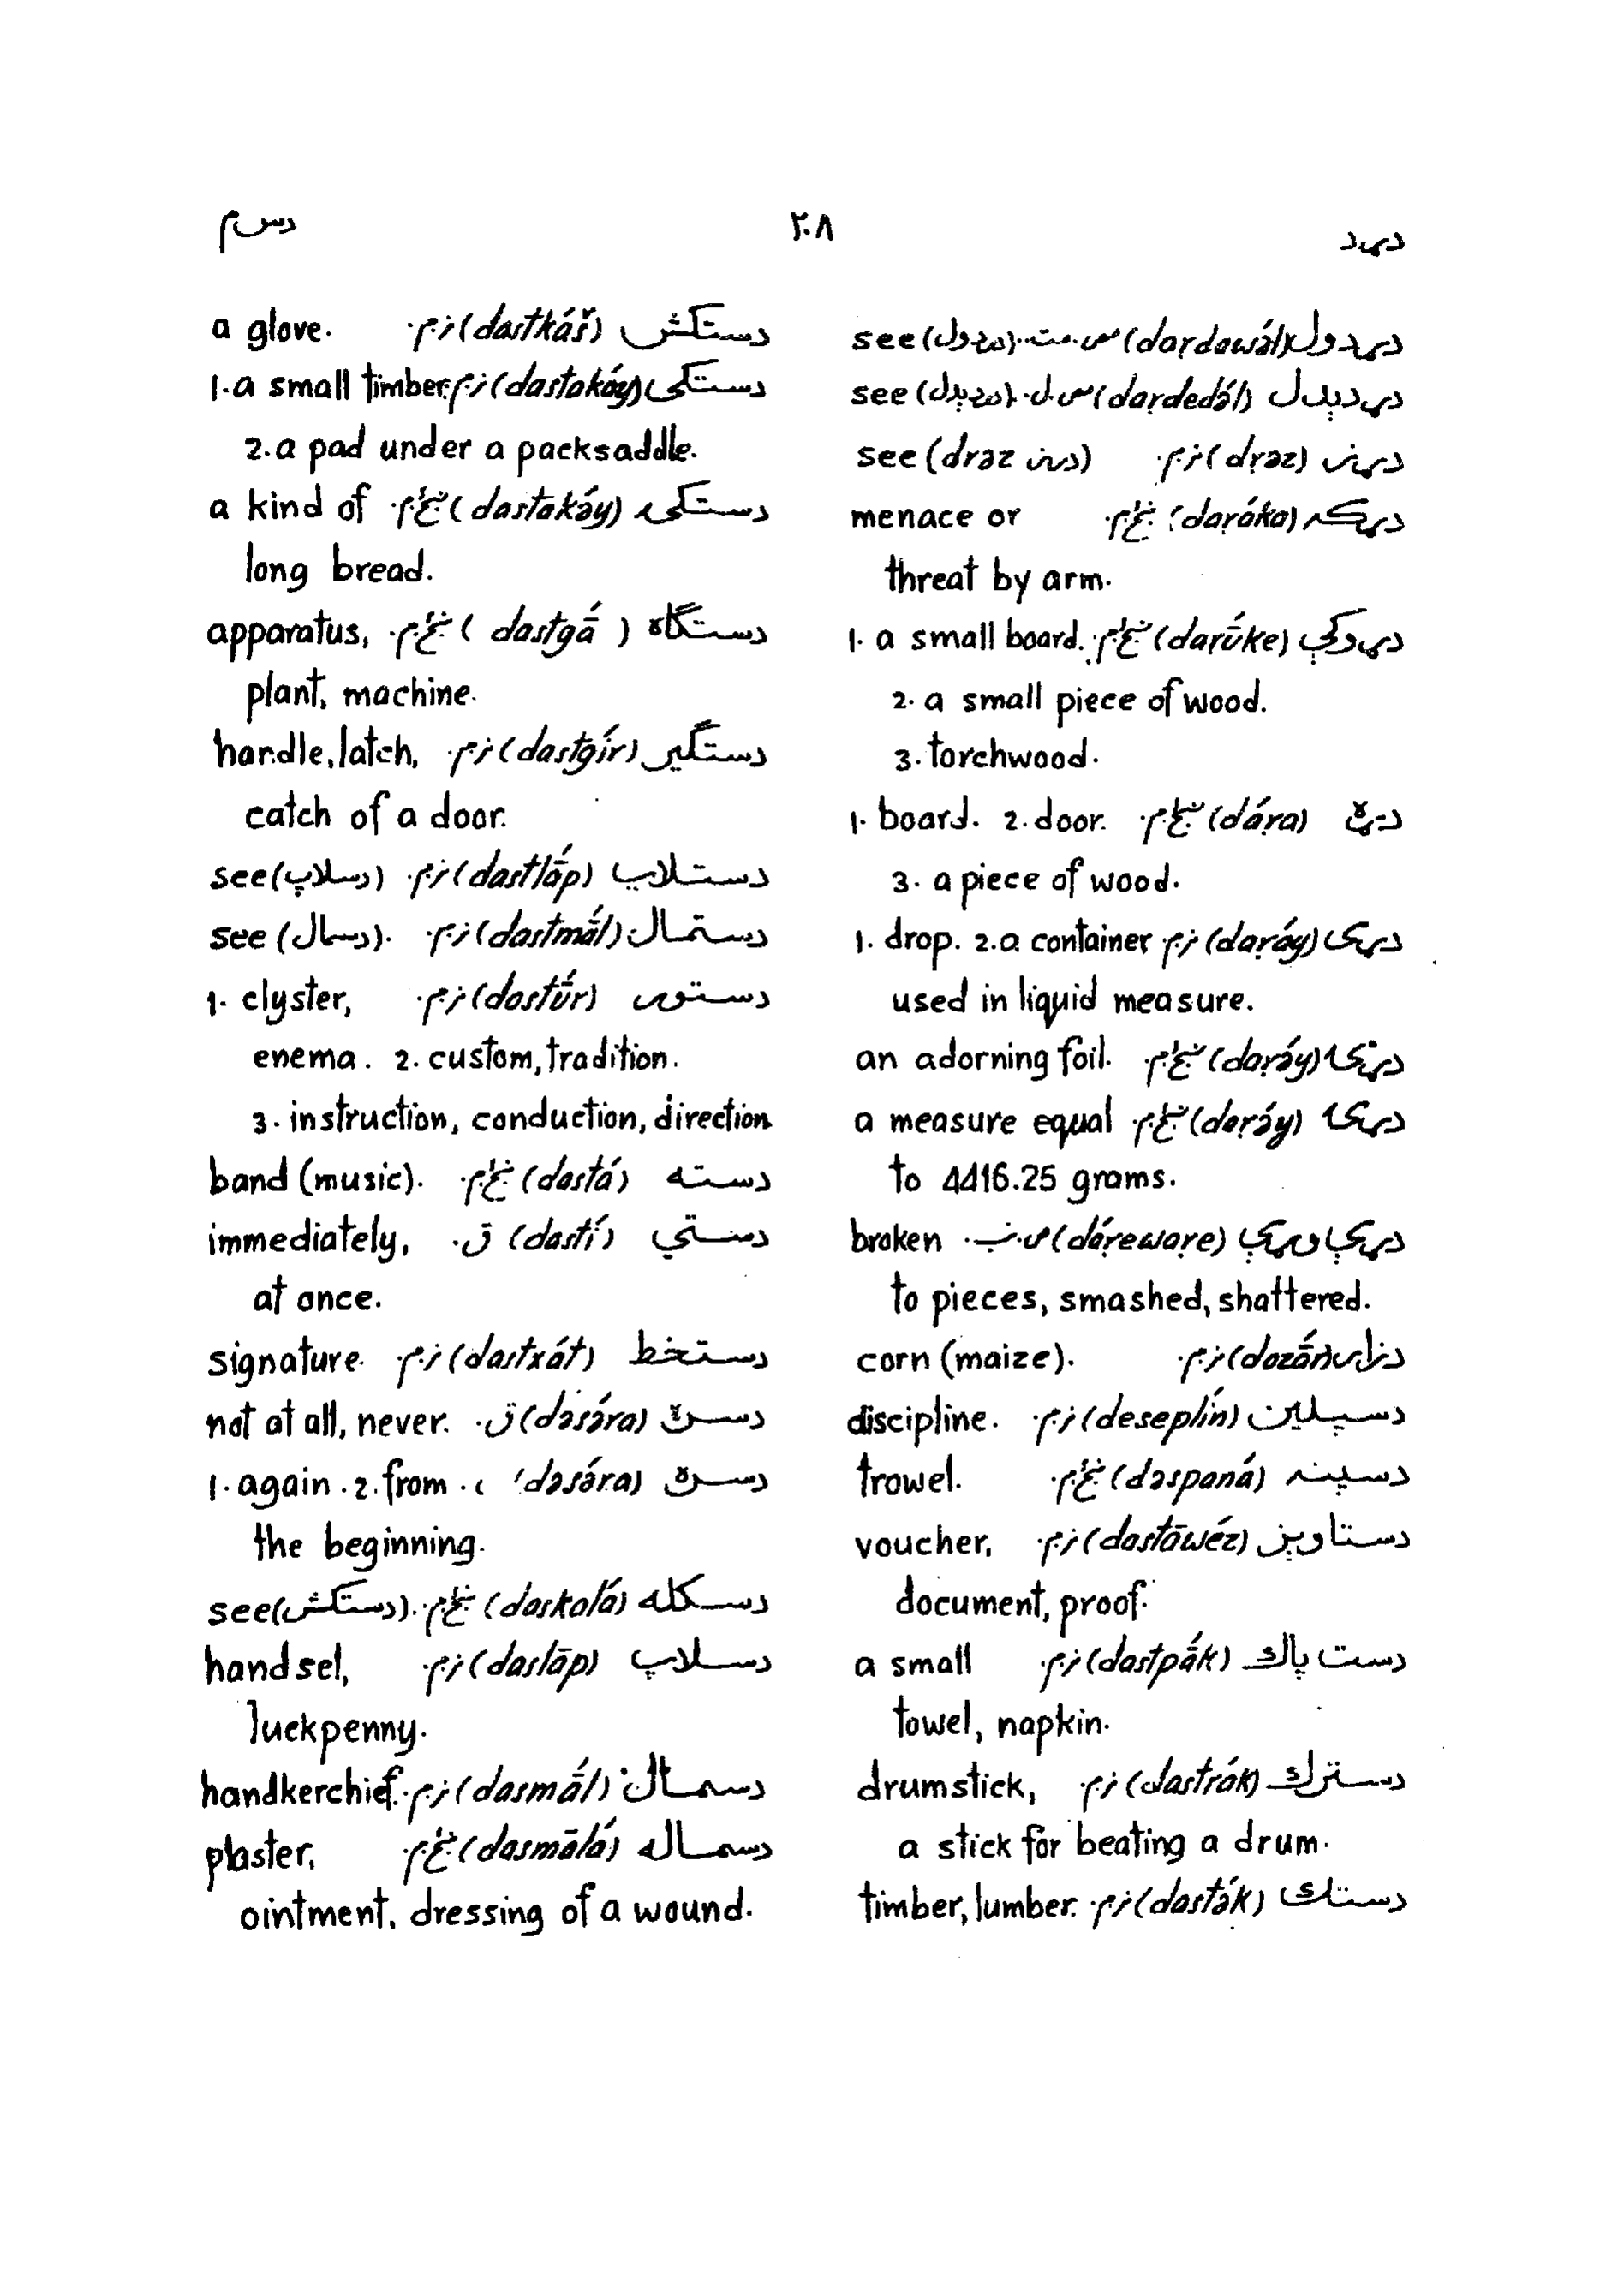 دړد ۲۰۸ دسم
دړدول (daṛdawə́l) see (دړدول).
دړدېدل (daṛdedə́l) see (دړدېدل).
دړز (dṛəz) نر.م. see (drəz درز)
دړکه (daṛáka) ښځ.م. menace or
threat by arm.
دړوکې (daṛū́ke) ښځ.م. 1. a small board.
2. a small piece of wood.
3. torchwood.
دړه (dáṛa) ښځ.م. 1. board. 2. door.
3. a piece of wood.
دړی (daṛáy) نر.م. 1. drop. 2. a container
used in liquid measure.
دړۍ (daṛə́y) ښځ.م. an adorning foil.
دړۍ (daṛə́y) ښځ.م. a measure equal
to 4416.25 grams.
دړې وړې (dáṛewaṛe) ص.ب. broken
to pieces, smashed, shattered.
دزار (dazā́r) نر.م. corn (maize).
دسپلين (deseplín) نر.م. discipline.
دسپنه (dəspaná) ښځ.م. trowel.
دستاوېز (dastāwéz) نر.م. voucher,
document, proof.
دست پاك (dastpā́k) نر.م. a small
towel, napkin.
دسترك (dastrák) نر.م. drumstick,
a stick for beating a drum.
دستك (dasták) نر.م. timber, lumber.
دستکش (dastkáš) نر.م. a glove.
دستکی (dastakáy) نر.م. 1. a small timber.
2. a pad under a packsaddle.
دستکۍ (dastakə́y) ښځ.م. a kind of
long bread.
دستګاه (dastgā́) ښځ.م. apparatus,
plant, machine.
دستګير (dastgír) نر.م. handle, latch,
catch of a door.
دستلاپ (dastlā́p) نر.م. see (دسلاپ)
دستمال (dastmā́l) نر.م. see (دسمال).
دستور (dastū́r) نر.م. 1. clyster,
enema. 2. custom, tradition.
3. instruction, conduction, direction
دسته (dastá) ښځ.م. band (music).
دستي (dastí) ق. immediately,
at once.
دستخط (dastxát) نر.م. signature.
دسره (dəsə́ra) ق. not at all, never.
دسره (dəsə́ra) 1. again. 2. from
the beginning.
دسکله (daskalá) ښځ.م. see (دستکش).
دسلاپ (daslāp) نر.م. handsel,
luckpenny.
دسمال (dasmā́l) نر.م. handkerchief.
دسماله (dasmālá) ښځ.م. plaster,
ointment, dressing of a wound.